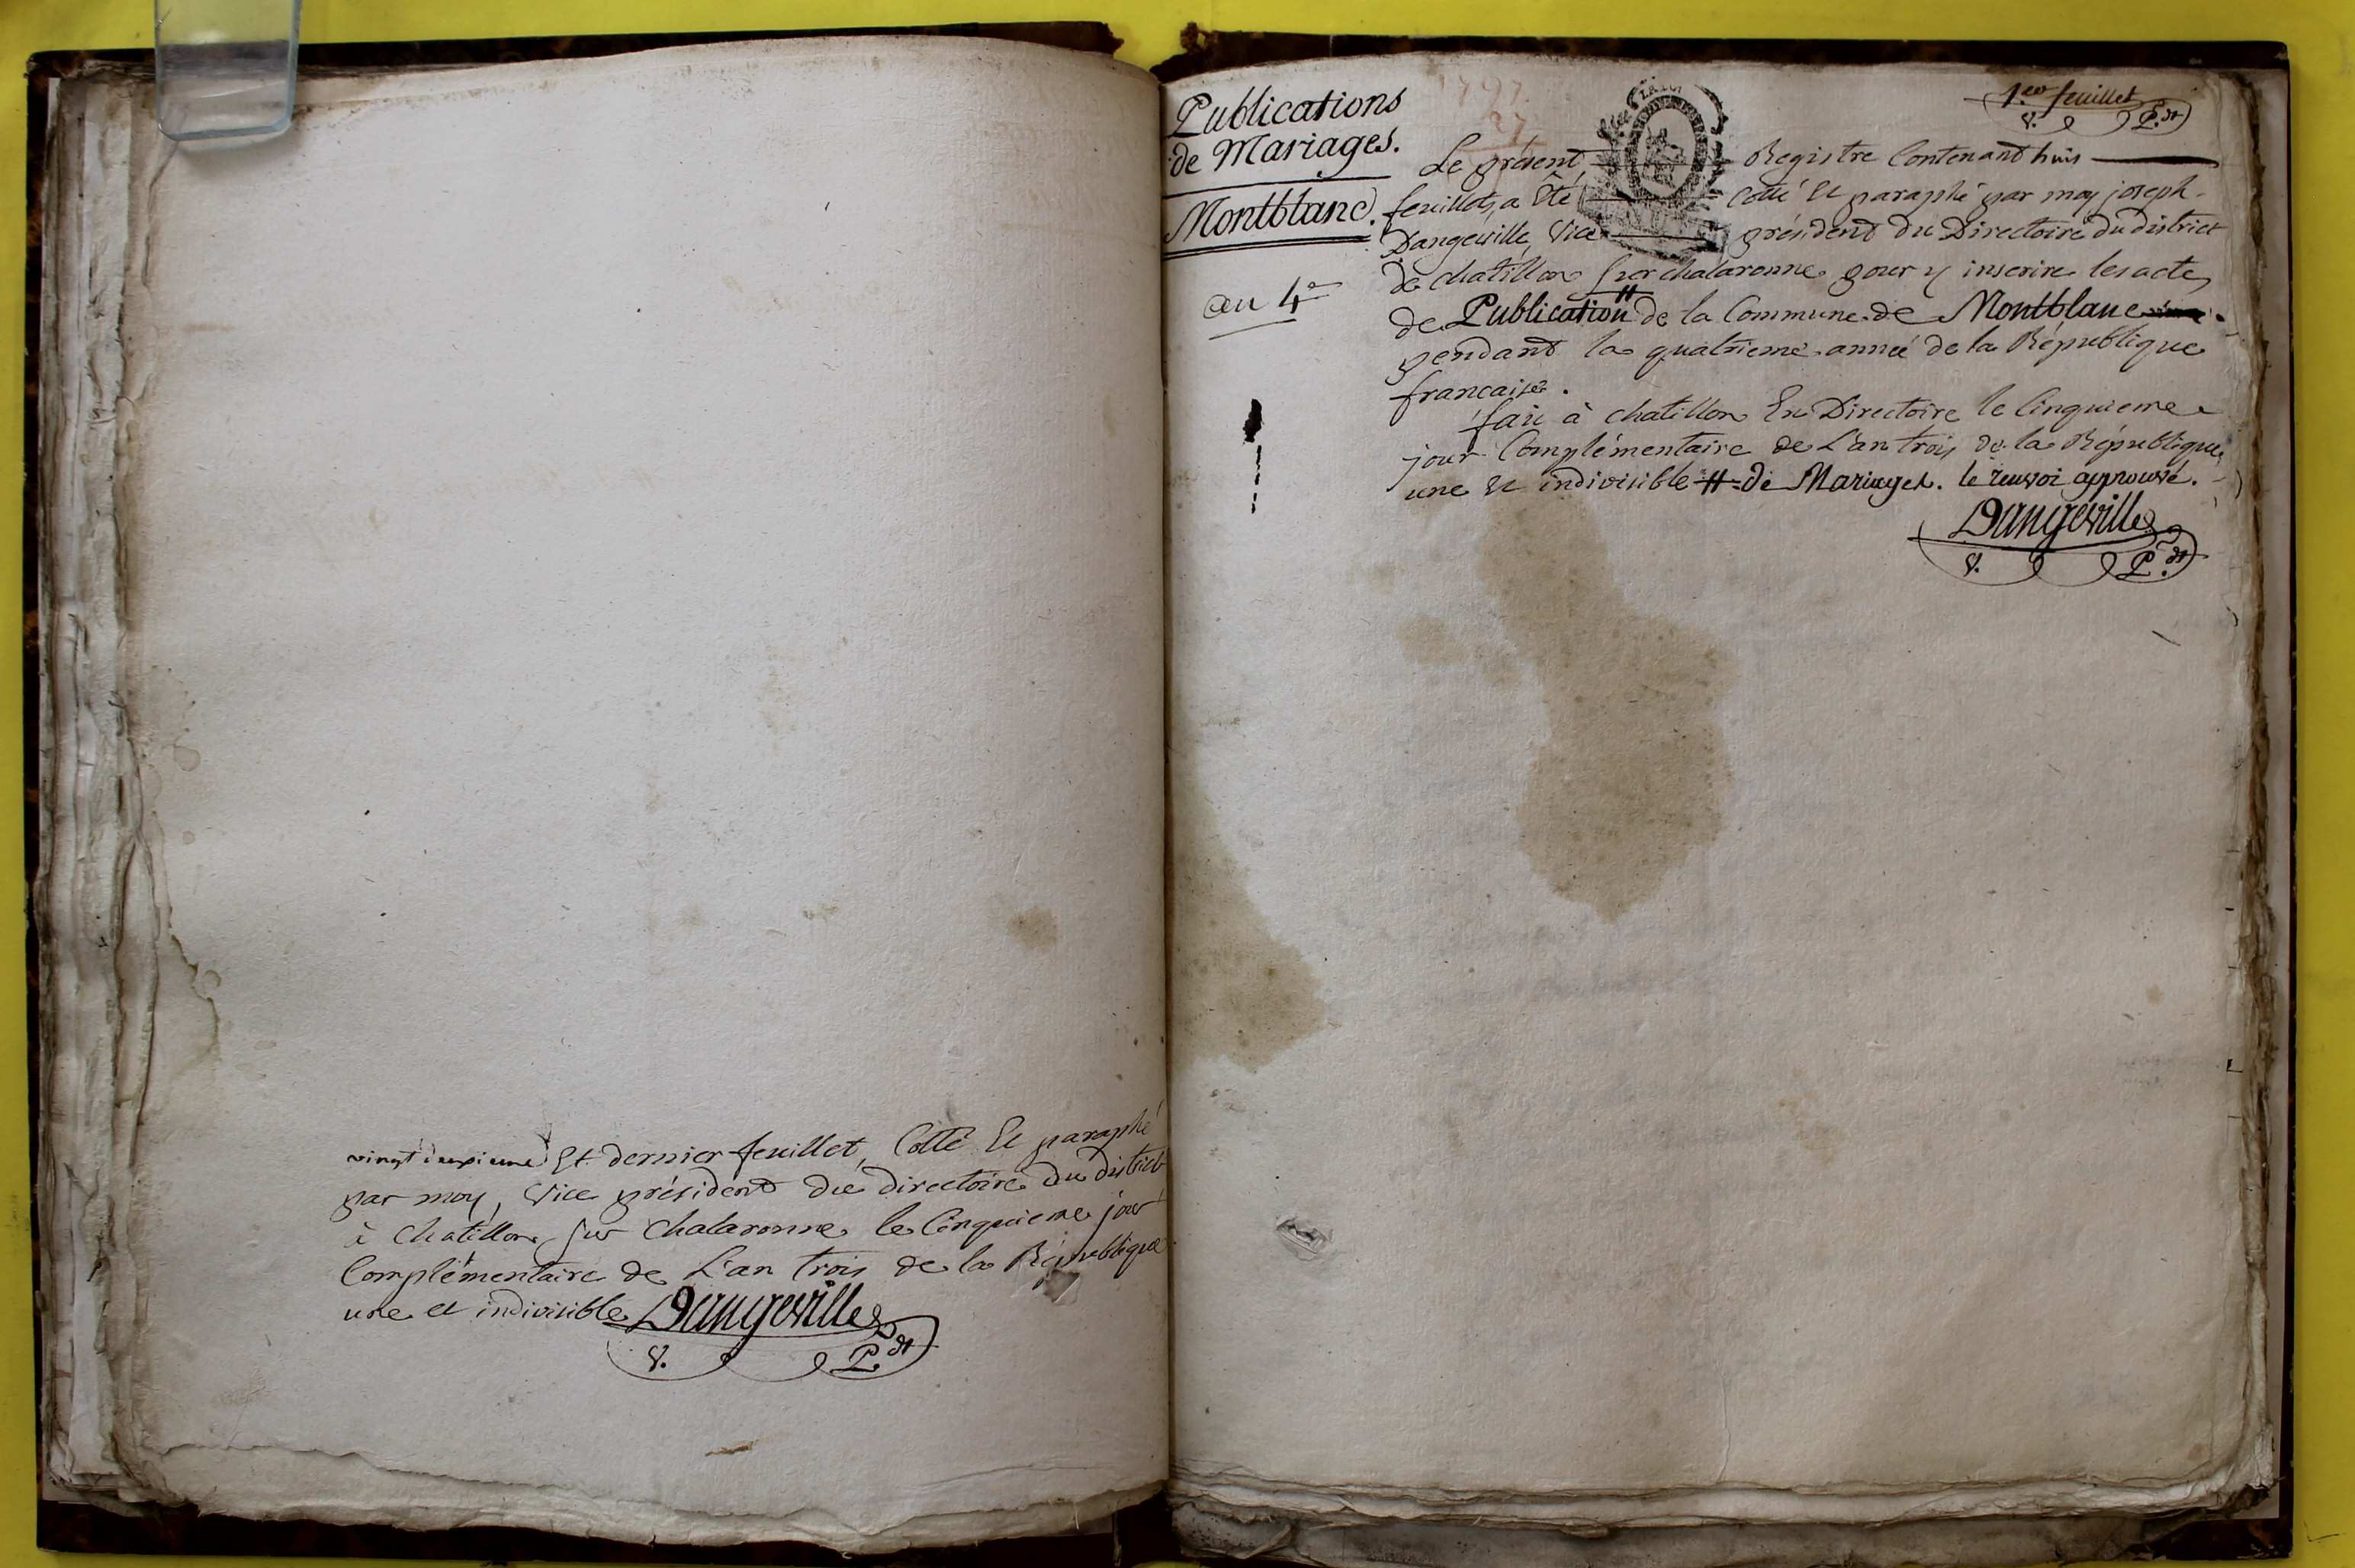 vingt deuxieme Et dernier feuillet, Cotté Et paraphé
par moy, Vice président du directoire du district
à Chatillon sur Chalaronne le Cinquieme jour
Complémentaire de L'an trois de la République
une et indivisible Dangeville
V. P.dt
Publications
de Mariages.
Montblanc.
an 4e
1797.
LA LOI
1.er feuillet
V. P.dt
Le présent Registre Contenant huit
feuillets, a Eté Cotté Et paraphé par moy joseph
Dangeville, Vice président du Directoire du district
de chatillon sur chalaronne pour y inscrire les actes
de Publication # de la Commune de Montblanc
pendant la quatrieme année de la République
francaise.
fait à chatillon En Directoire le Cinquieme
jour Complémentaire de L'an trois de la République
une Et indivisible # de Mariages. le renvoi approuvé.
Dangeville
V. P.dt